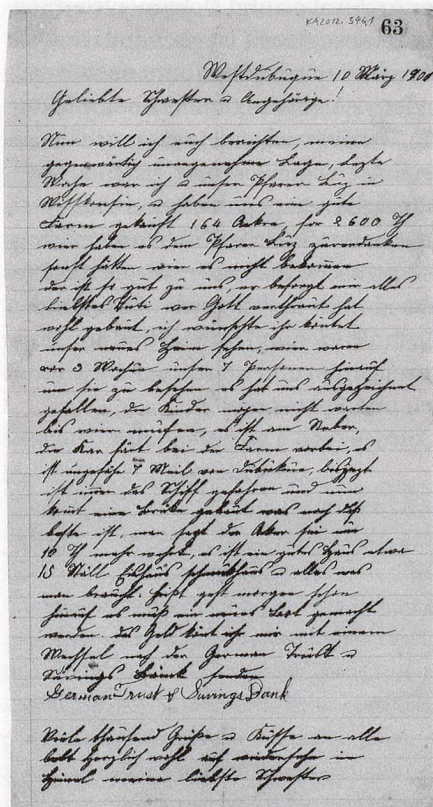 KA2012. 5491
63
Westdubuque 10 März 1901
Geliebte Schwester u Angehörige!
Nun will ich euch berichten, meine
gegenwärtig unangenehme Lage, letzte
Woche war ich u unser Pfarer Lüz in
Wisskonsin, u haben uns ein gute
Farm gekauft 164 Acker, for 2600 Th
wier haben es dem Pfarer Lüz zuverdanken
sonst hätten wier es nicht bekommen
der ist so gut zu uns, er besorgt mir alles
liebstes wer Gott verthraut hat
wohl gebaut, ich wünschte ihr köntet
unser neues Heim sehen, wier waren
vor 3 Wochen unser 7 Personen hinauf
um sie zu besehen es hat uns ausgezeichnet
gefallen, die Kinder mögen nicht warten
bis wier es ist am
die Kar färt bei der Farm vorbei, es
ist ungefähr 7 Meil von Dubukue,
ist imer das Schiff gefahren und nun
wird eine Brüke gebaut was noch das
beste ist, man sagt der Aker sei um
10 Th mehr wehrt, es ist ein gutes Haus etwa
15 Ställ u alles was
man braucht. geht morgen schon
hinauf es muß ein neues gemacht
werden. das Geld könt ihr mir mit einem
Wechsel nach der German Trust u
Savings Bank senden
German Trust & Savings Bank
Viele thausend Grüße u Küsse an alle
lebt herzlich wohl auf widersehn im
Himel meine liebste Schwester